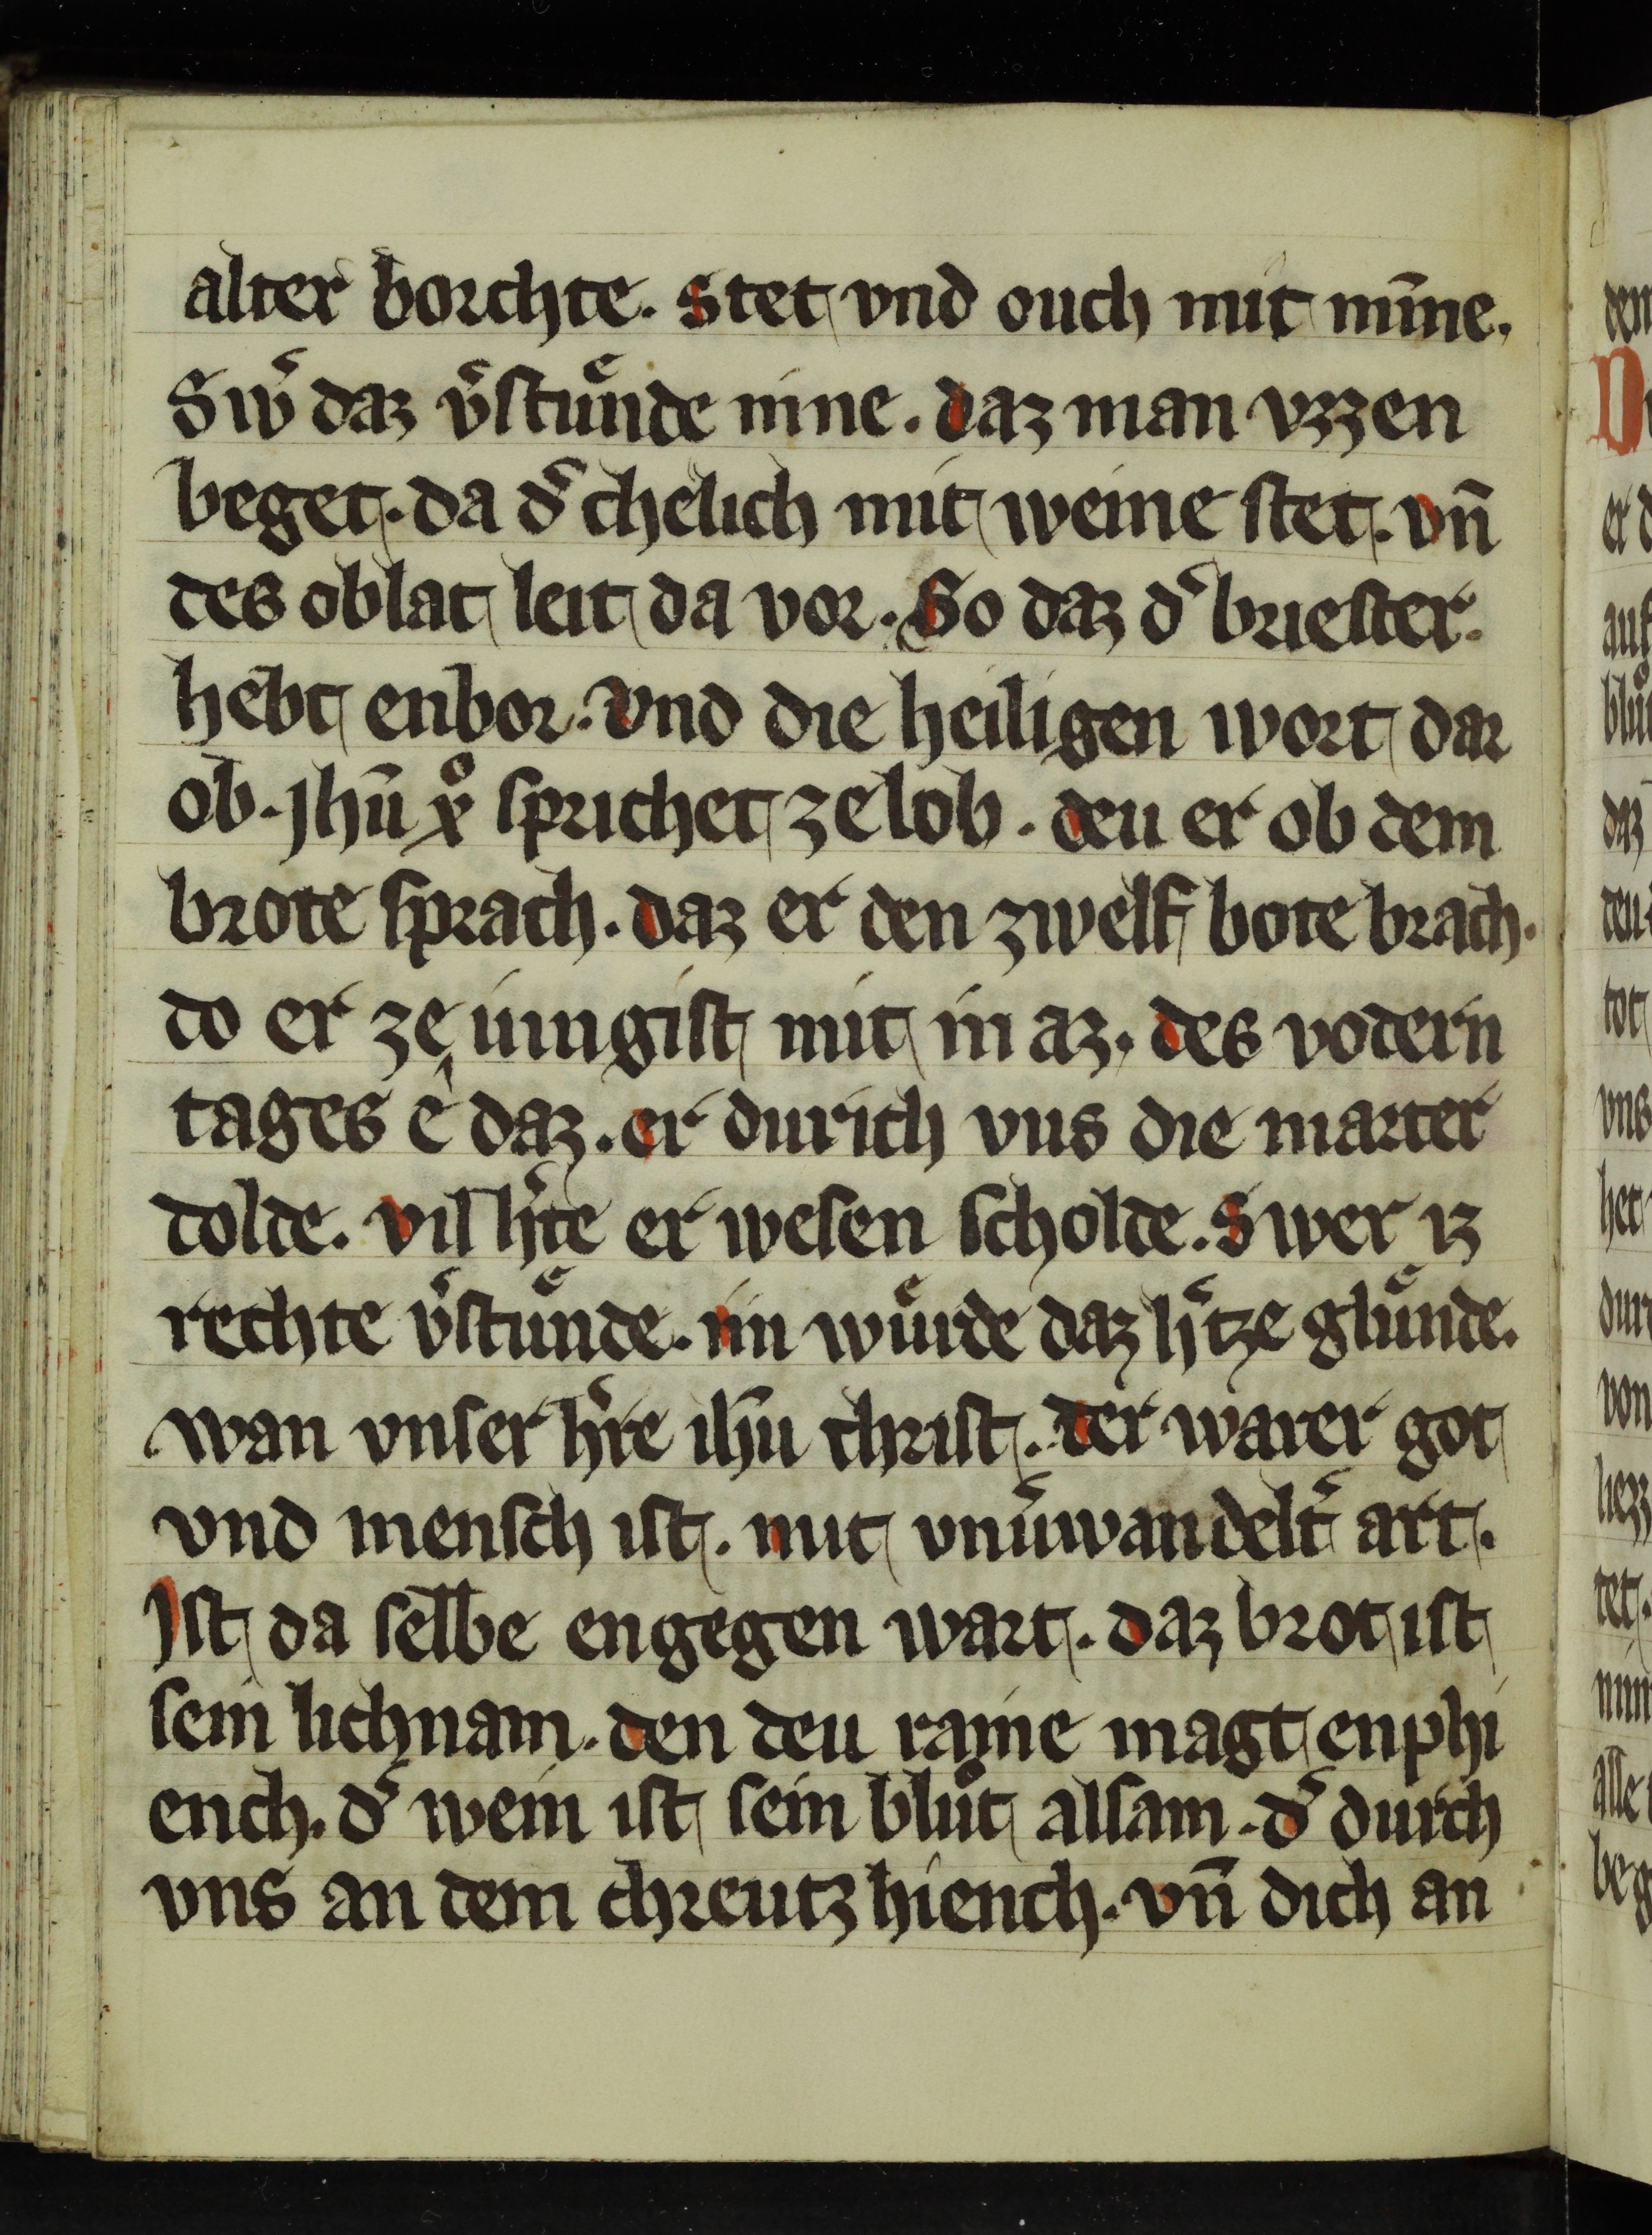 alter vorchte. Stet vnd ouch mit mīne.
Sw͛ daz v͛stuͤnde nine. daz man vzzen
beget. da d͛ chelich mit weine stet. vn̄
des oblat leit da vor. So daz d͛ briester.
hebt enbor. Vnd die heiligen wort dar
ob. Jhū xᷣo sprichet ze lob. deu er ob dem
brote sprach. daz er den zwelf bote brach.
do er ze iungist mit in az. des vodern
tages e daz. er durich vns die marter
dolde. vil h͛te er wesen scholde. Swer iz
rechte v͛stuͤnde. im wuͤrde daz h͛tze gluͤnde.
wan vnser h͛re ihū christ. der warer got
vnd mensch ist. mit vnu͛wandelt͛ art.
Ist da selbe engegen wart. daz brot ist
sein lichnam. den deu raine magt enphi
ench. d͛ wein ist sein bluͦt alsam. d͛ durch
vns an dem chreutz hiench. vn̄ dich an